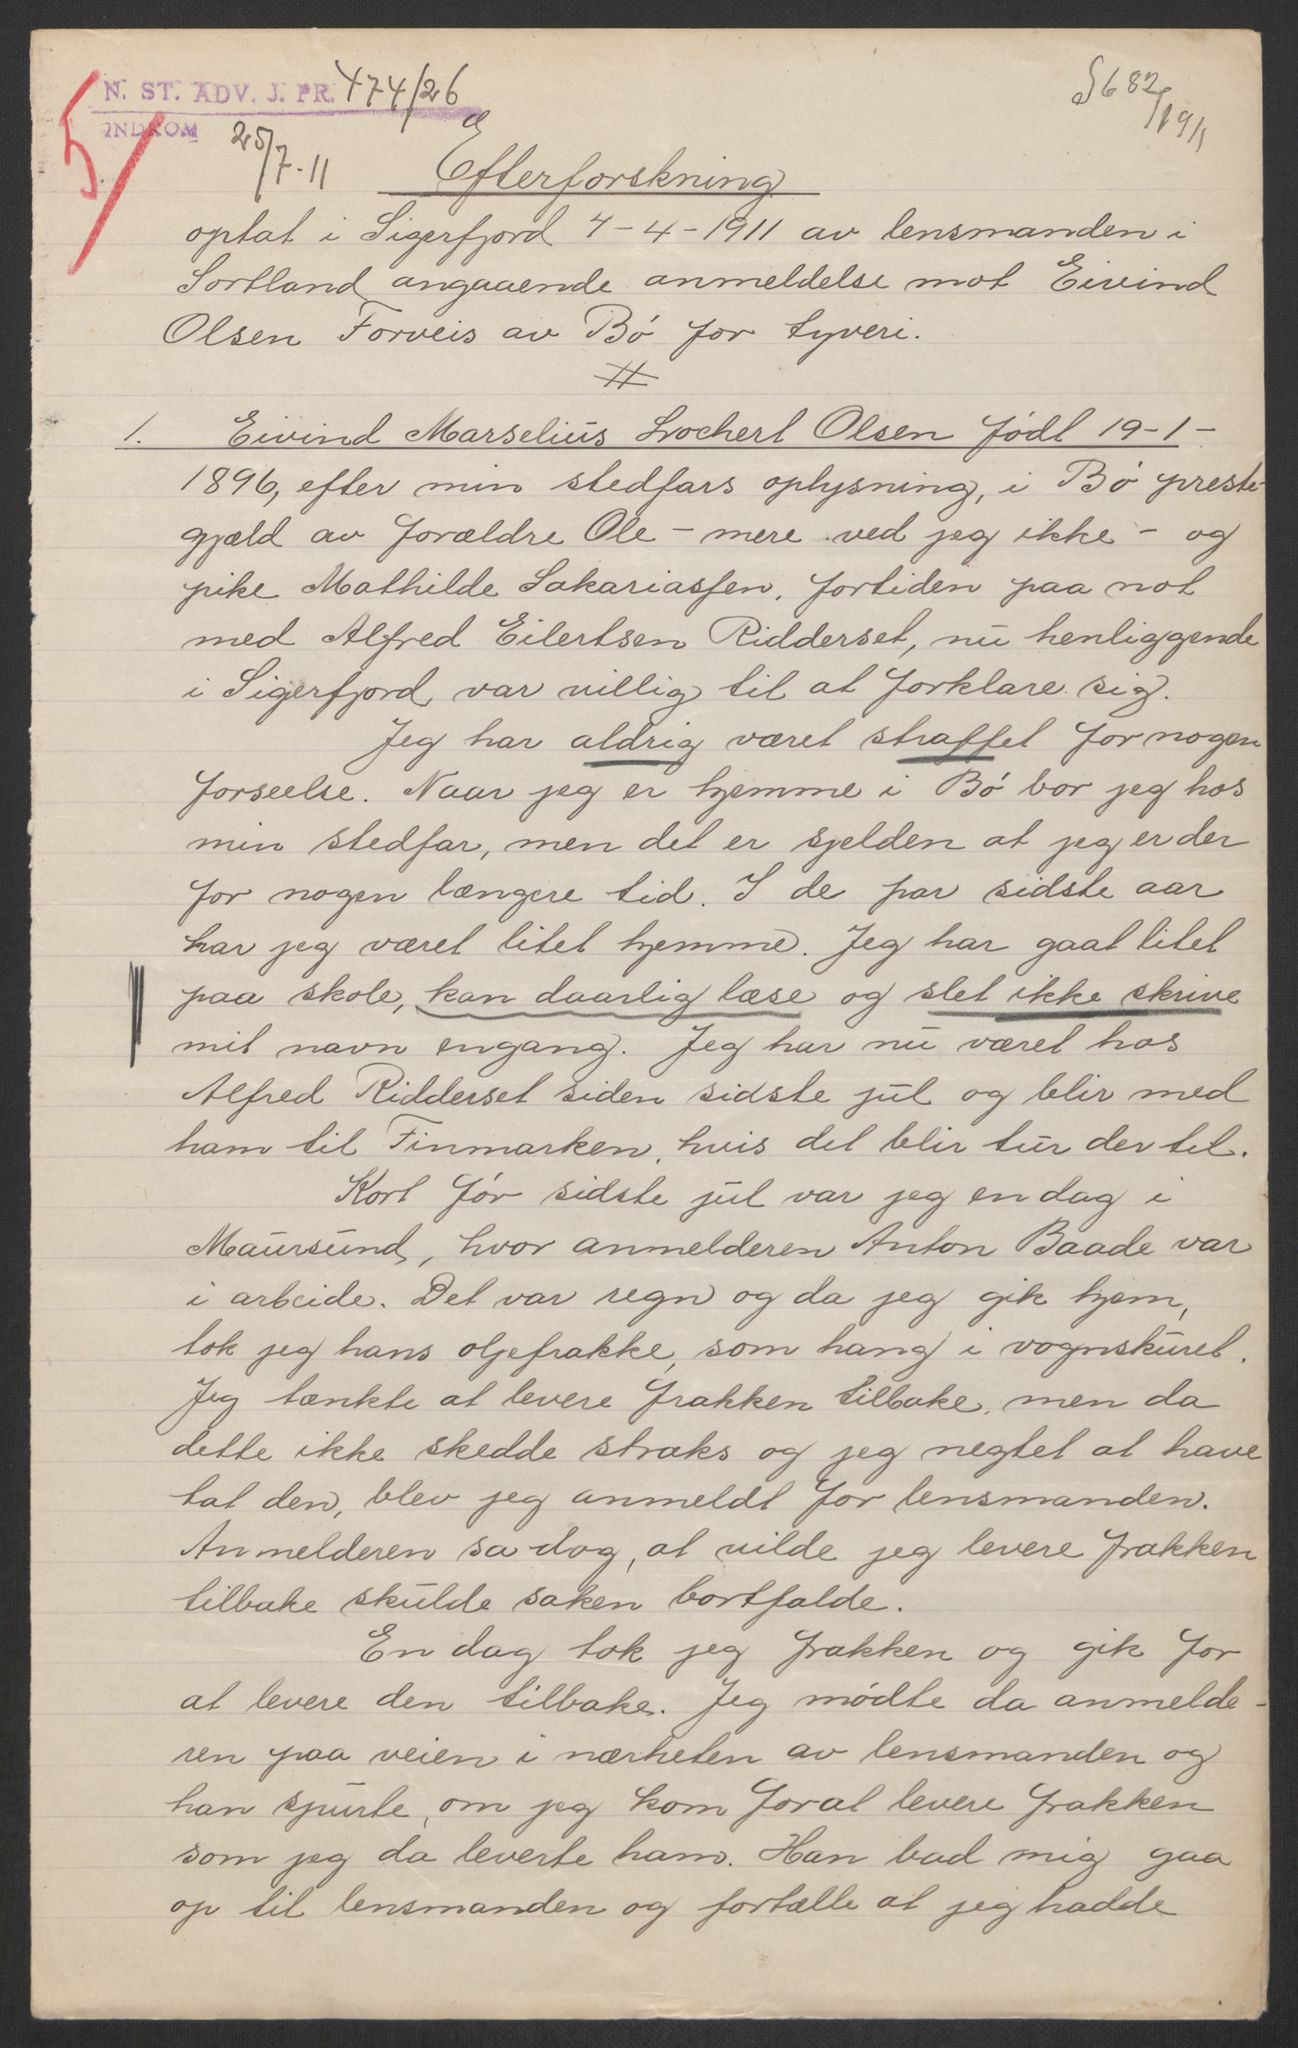 N. ST. ADV. J. PR. 474/26
INDKOM 25/7-11
S 682/1911
5
Efterforskning
optat i Sigerfjord 7-4-1911 av lensmanden i
Sortland angaaende anmeldelse mot Eivind
Olsen Forveis av Bö for tyveri.
1. Eivind Marselius Lochert Olsen födt 19-1-
1896, efter min stedfars oplysning, i Bö preste-
gjæld av forældre Ole - mere ved jeg ikke - og
pike Mathilde Sakariassen, fortiden paa not
med Alfred Eilertsen Ridderset, nu henliggende
i Sigerfjord var villig til at forklare sig.
Jeg har aldrig været straffet for nogen
forseelse. Naar jeg er hjemme i Bö bor jeg hos
min stedfar, men det er sjelden at jeg er der
for nogen længere tid. I de par sidste aar
har jeg været litet hjemme. Jeg har gaat litet
paa skole, kan daarlig læse og slet ikke skrive
mit navn engang. Jeg har nu været hos
Alfred Ridderset siden sidste jul og blir med
ham til Finmarken, hvis det blir tur der til.
Kort för sidste jul var jeg en dag i
Maursund, hvor anmelderen Anton Baade var
i arbeide. Det var regn og da jeg gik hjem,
tok jeg hans oljefrakke, som hang i vognskuret.
Jeg tænkte at levere frakken tilbake, men da
dette ikke skedde straks og jeg negtet at have
tat den, blev jeg anmeldt for lensmanden.
Anmelderen sa dog, at vilde jeg levere frakken
tilbake skulde saken bortfalde.
En dag tok jeg frakken og gik for
at levere den tilbake. Jeg mödte da anmelde-
ren paa veien i nærheten av lensmanden og
han spurte, om jeg kom forat levere frakken
som jeg da leverte ham. Han bad mig gaa
op til lensmanden og fortælle at jeg hadde